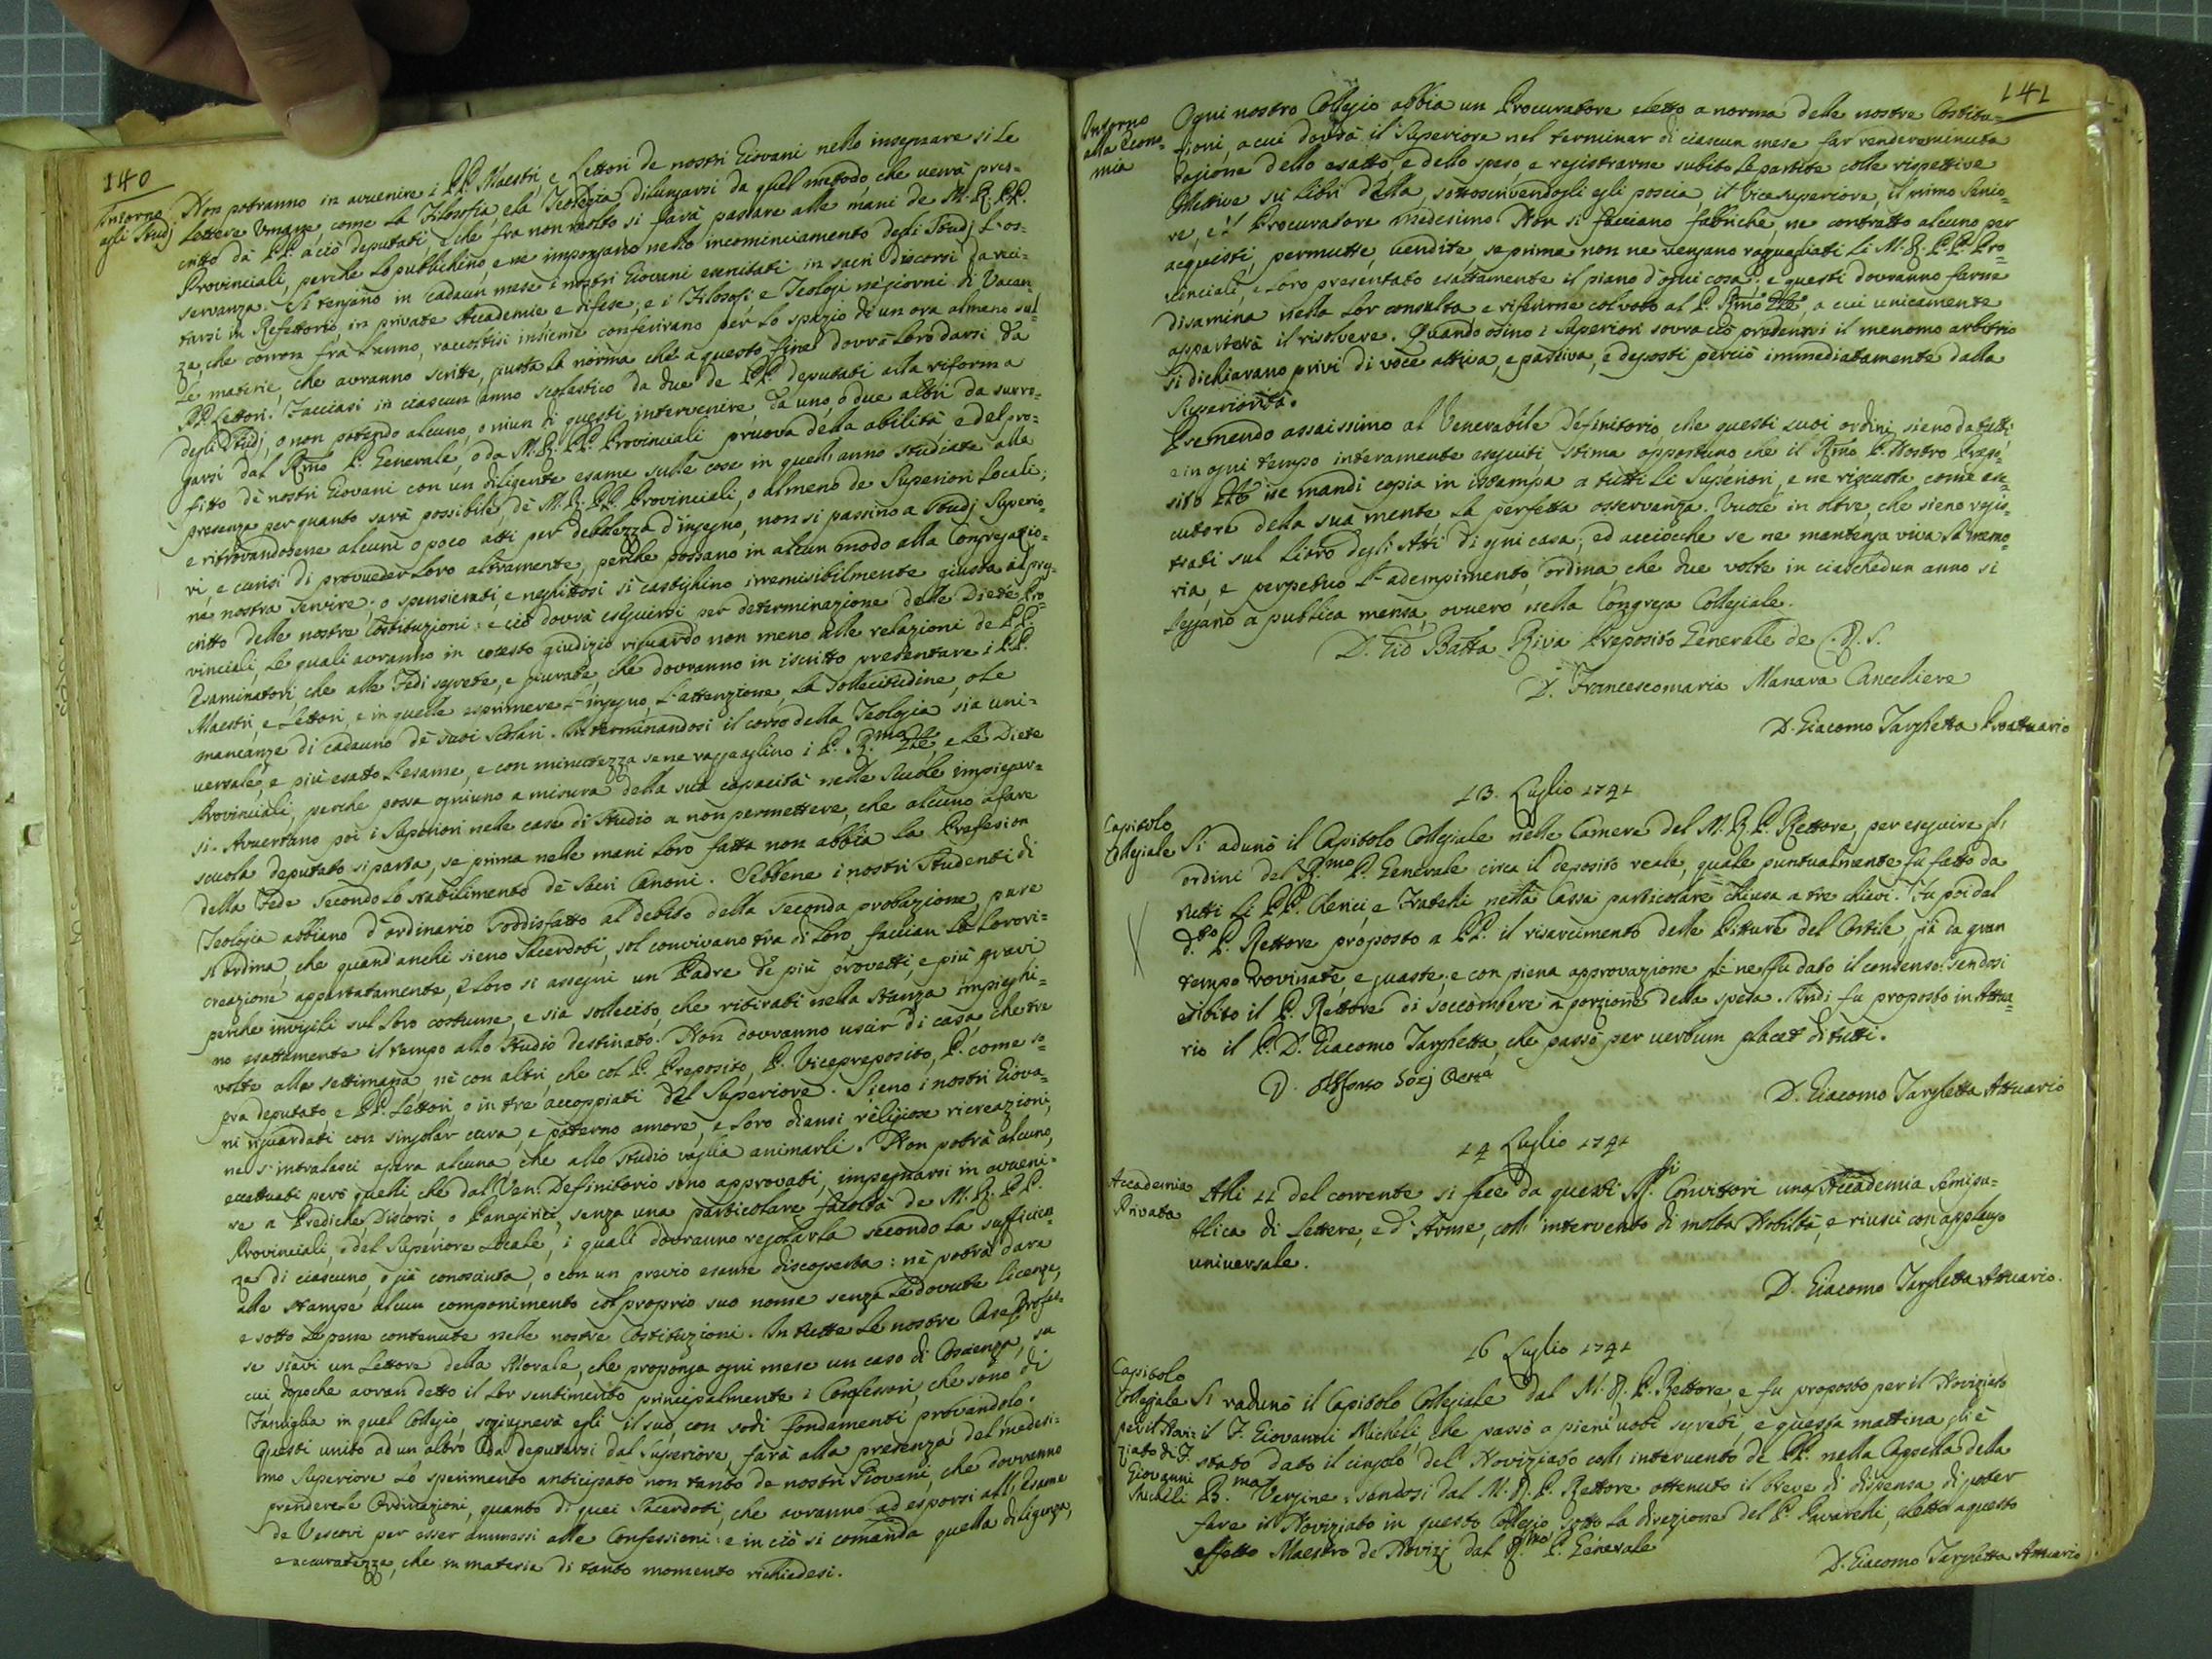 140
Intorno
agli Studj
Non potranno in avvenire i PP. Maestri, e Lettori de nostri Giovani nello insegnare sì le
Lettere Umane, come la Filosofia, e la Teologia dilungarsi da quel metodo, che verrà pres=
critto da PP. a ciò deputati, e che fra non molto si farà passare alle mani de M. R. PP.
Provinciali, perche lo publichino, e ne impongano nello incominciamento degli Studj l'os=
servanza. Si tengano in cadaun mese i nostri Giovani esercitati in sacri discorsi da reci=
tarsi in Refettorio, in private Accademie e difese; e i Filosofi, e Teologi ne giorni di Vacan=
za, che corron frà l'anno, raccoltisi insieme conferirano per lo spazio di un ora almeno sul=
le materie, che avranno scritte, giusta la norma che a questo fine dovrà loro darsi da
PP. Lettori. Facciasi in ciascun anno scolastico da due de PP. deputati alla riforma
degli Studj, o non potendo alcuno, o niun di questi intervenire, da uno, o due altri da surro=
garsi dal Rmo P. Generale, o da M. R. PP. Provinciali pruova della abilità e del pro=
fitto de nostri Giovani con un diligente esame sulle cose in quell'anno studiate alla
presenza per quanto sarà possibile, de M. R. PP. Provinciali, o almeno de Superiori Locali;
e ritrovandosene alcuni o poco atti per debolezza d'ingegno, non si passino a Studj Superio=
ri, e curisi di proveder loro altramente, perche possano in alcun modo alla Congregazio=
ne nostra servire: o spensierati, e neghittosi si castighino irremisibilmente giusta il pres=
critto delle nostre Costituzioni: e ciò dovrà eseguirsi per determinazione delle Diete Pro=
vinciali, le quali avranno in cotesto giudizio riguardo non meno alle relazioni de PP.
Esaminatori che alle Fedi segrete, e giurate, che dovranno in iscritto presentare i PP.
Maestri, e Lettori, e in quelle esprimere l'ingegno, l'attenzione, la sollecitudine, o le
mancanze di cadauno de suoi scolari. In terminandosi il corso della Teologia sia uni=
versale, e più esatto l'esame, e con minutezza se ne ragguaglino i P. R.mo Gle, e le Diete
Provinciali, perche possa ogniuno a misura della sua capacità nelle scuole impiegar=
si. Avvertano poi i Superiori nelle case di Studio a non permettere, che alcuno a fare
scuola deputato si parta, se prima nelle mani loro fatta non abbia la Professio
della Fede secondo lo stabilimento de Sacri Canoni. Sebbene i nostri Studenti di
Teologia abbiano d'ordinario soddisfatto al debito della seconda probazione, pure
si ordina, che quand'anchi sieno Sacerdoti, sol convivano tra di loro, faccian la loro ri=
creazione appartatamente, e loro si assegni un Padre de più provetti, e più gravi
perche invigili sul loro costume, e sia sollecito, che ritirati nella stanza impieghi=
no esattamente il tempo allo studio destinato. Non dovranno uscir di casa, che tre
volte alla settimana, nè con altri, che col P. Preposito, P. Vicepreposito, P. come so=
pra deputato, e PP. Lettori, o in tre accoppiati dal Superiore. Sieno i nostri Giova=
ni riguardati con singolar cura, e paterno amore, e loro diansi religiose ricreazioni,
ne s'intralasci opera alcuna, che allo studio vaglia animarli. Non potrà alcuno,
eccettuati però quelli che dal Ven. Definitorio sono approvati, impegnarsi in avveni=
re a Prediche, Discorsi, o Panegirici, senza una particolare facoltà de M. R. PP.
Provinciali, o del Superiore Locale, i quali dovranno regolarla secondo la sufficien
za di ciascuno, o già conosciuta, o con un previo esame discoperta: nè potrà dare
alle stampe alcun componimento col proprio suo nome senza le dovute licenze,
e sotto le pene contenute nelle nostre Costituzioni. In tutte le nostre Case Profes=
se siavi un Lettore della Morale, che proponga ogni mese un caso di Coscienza, su
cui, dopoche avran detto il lor sentimento principalmente i Confessori, che sono di
Famiglia in quel Collegio, sogiugnerà egli il suo, con sodi fondamenti provandolo.
Questi unito ad un altro da deputarsi dal Superiore, farà alla presenza del medesi=
mo Superiore lo sperimento anticipato non tanto de nostri Giovani, che dovranno
prendere le Ordinazioni, quanto di quei Sacerdoti, che avranno ad esporsi all'Esame
de Vescovi per esser ammessi alle Confessioni: e in ciò si comanda quella diligenza,
e accuratezza, che in materia di tanto momento richiedesi.
141
Intorno
alla Econo=
mia
Ogni nostro Collegio abbia un Procuratore eletto a norma delle nostre Costitu=
zioni, a cui dovrà il Superiore nel terminar di ciascun mese far rendere minuta
ragione dello esatto, e dello speso, e registrarne subito le partite colle rispettive
su libri della, sottoscrivendogli egli poscia, il Vicesuperiore, il primo Senio=
re, e 'l Procuratore medesimo. Non si facciano fabriche, ne contratto alcuno per
acquisti, permutte, vendite, se prima non ne vengano ragguagliati li M. R. PP. Pro=
vinciali, e loro presentato esattamente il piano d'ogni cosa; e questi dovranno farne
disamina nella lor consulta e riferirne col voto al P. Rmo Gle, a cui unicamente
apparterà il risolvere. Quando osino i Superiori sovra ciò prendersi il menomo arbitrio
si dichiarano privi di voce attiva, e passiva, e deposti perciò immediatamente dalla
Superiorità.
Premendo assaissimo al Venerabile Definitorio, che questi suoi ordini sieno da tutti,
e in ogni tempo interamente eseguiti, stima opportuno che il Rmo P. Nostro Prepo=
sito Gle ne mandi copia in istampa a tutti li Superiori, e ne riscuota come ese=
cutore della sua mente la perfetta osservanza. Vuole in oltre, che sieno regis=
trati sul Libro degli Atti di ogni casa; ed accioche se ne mantenga viva la memo=
ria, e perpetuo l'adempimento, ordina, che due volte in ciaschedun anno si
leggano a publica mensa, ovvero nella Congrega Collegiale.
D. Gio Batta Riva Preposito Generale de C. R. S.
D. Francescomaria Manara Cancelliere
D. Giacomo Targhetta Proattuario
13. Luglio 1741
Capitolo
Collegiale
Si adunò il Capitolo Collegiale nelle Camere del M. R. P. Rettore, per eseguire gl'
ordini del R.mo P. Generale circa il deposito reale, quale puntualmente fu fatto da
tutti li PP. Cherici, e Fratelli nella Cassa particolare chiusa a tre chiavi. Fu poi dal
d.to P. Rettore proposto a PP. il risarcimento delle Pitture del Cortile, già da gran
tempo rovinate, e guaste, e con piena approvazione se ne fu dato il consenso: sendosi
esibito il P. Rettore di soccombere a porzione della spesa. Indi fu proposto in Attua=
rio il P. D. Giacomo Targhetta, che passò per verbum placet di tutti.
D. Alfonso Sozj Retre
D. Giacomo Targhetta Attuario
14 Luglio 1741
Accademia
Privata
Alli 11 del corrente si fece da questi SS.ri Convittori una Accademia semipu=
blica di Lettere, e d'Arme, coll'intervento di molta Nobiltà, e riuscì con applauso
universale.
D. Giacomo Targhetta Attuario.
16 Luglio 1741
Capitolo
Collegiale
per il Novi=
ziato di F.
Giovanni
Micheli
Si radunò il Capitolo Collegiale dal M. R. P. Rettore, e fu proposto per il Noviziato
il F. Giovanni Micheli, che passò a pieni voti segreti, e questa mattina gli è
stato dato il cingolo del Noviziato coll'intervento de PP. nella Cappella della
B.ma Vergine: sendosi dal M. R. P. Rettore ottenuto il breve di dispensa di poter
fare il Noviziato in questo Collegio sotto la direzione del P. Pavarelli, eletto a questo
effetto Maestro de Novizj dal R.mo P. Generale
D. Giacomo Targhetta Attuario